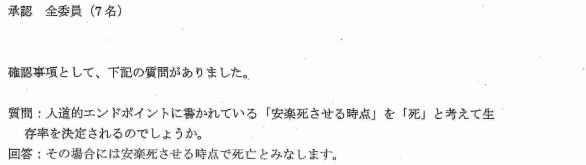 承認　全委員（7名）
確認事項として、下記の質問がありました。
質問：人道的エンドポイントに書かれている「安楽死させる時点」を「死」と考えて生
存率を決定されるのでしょうか。
回答：その場合には安楽死させる時点で死亡とみなします。